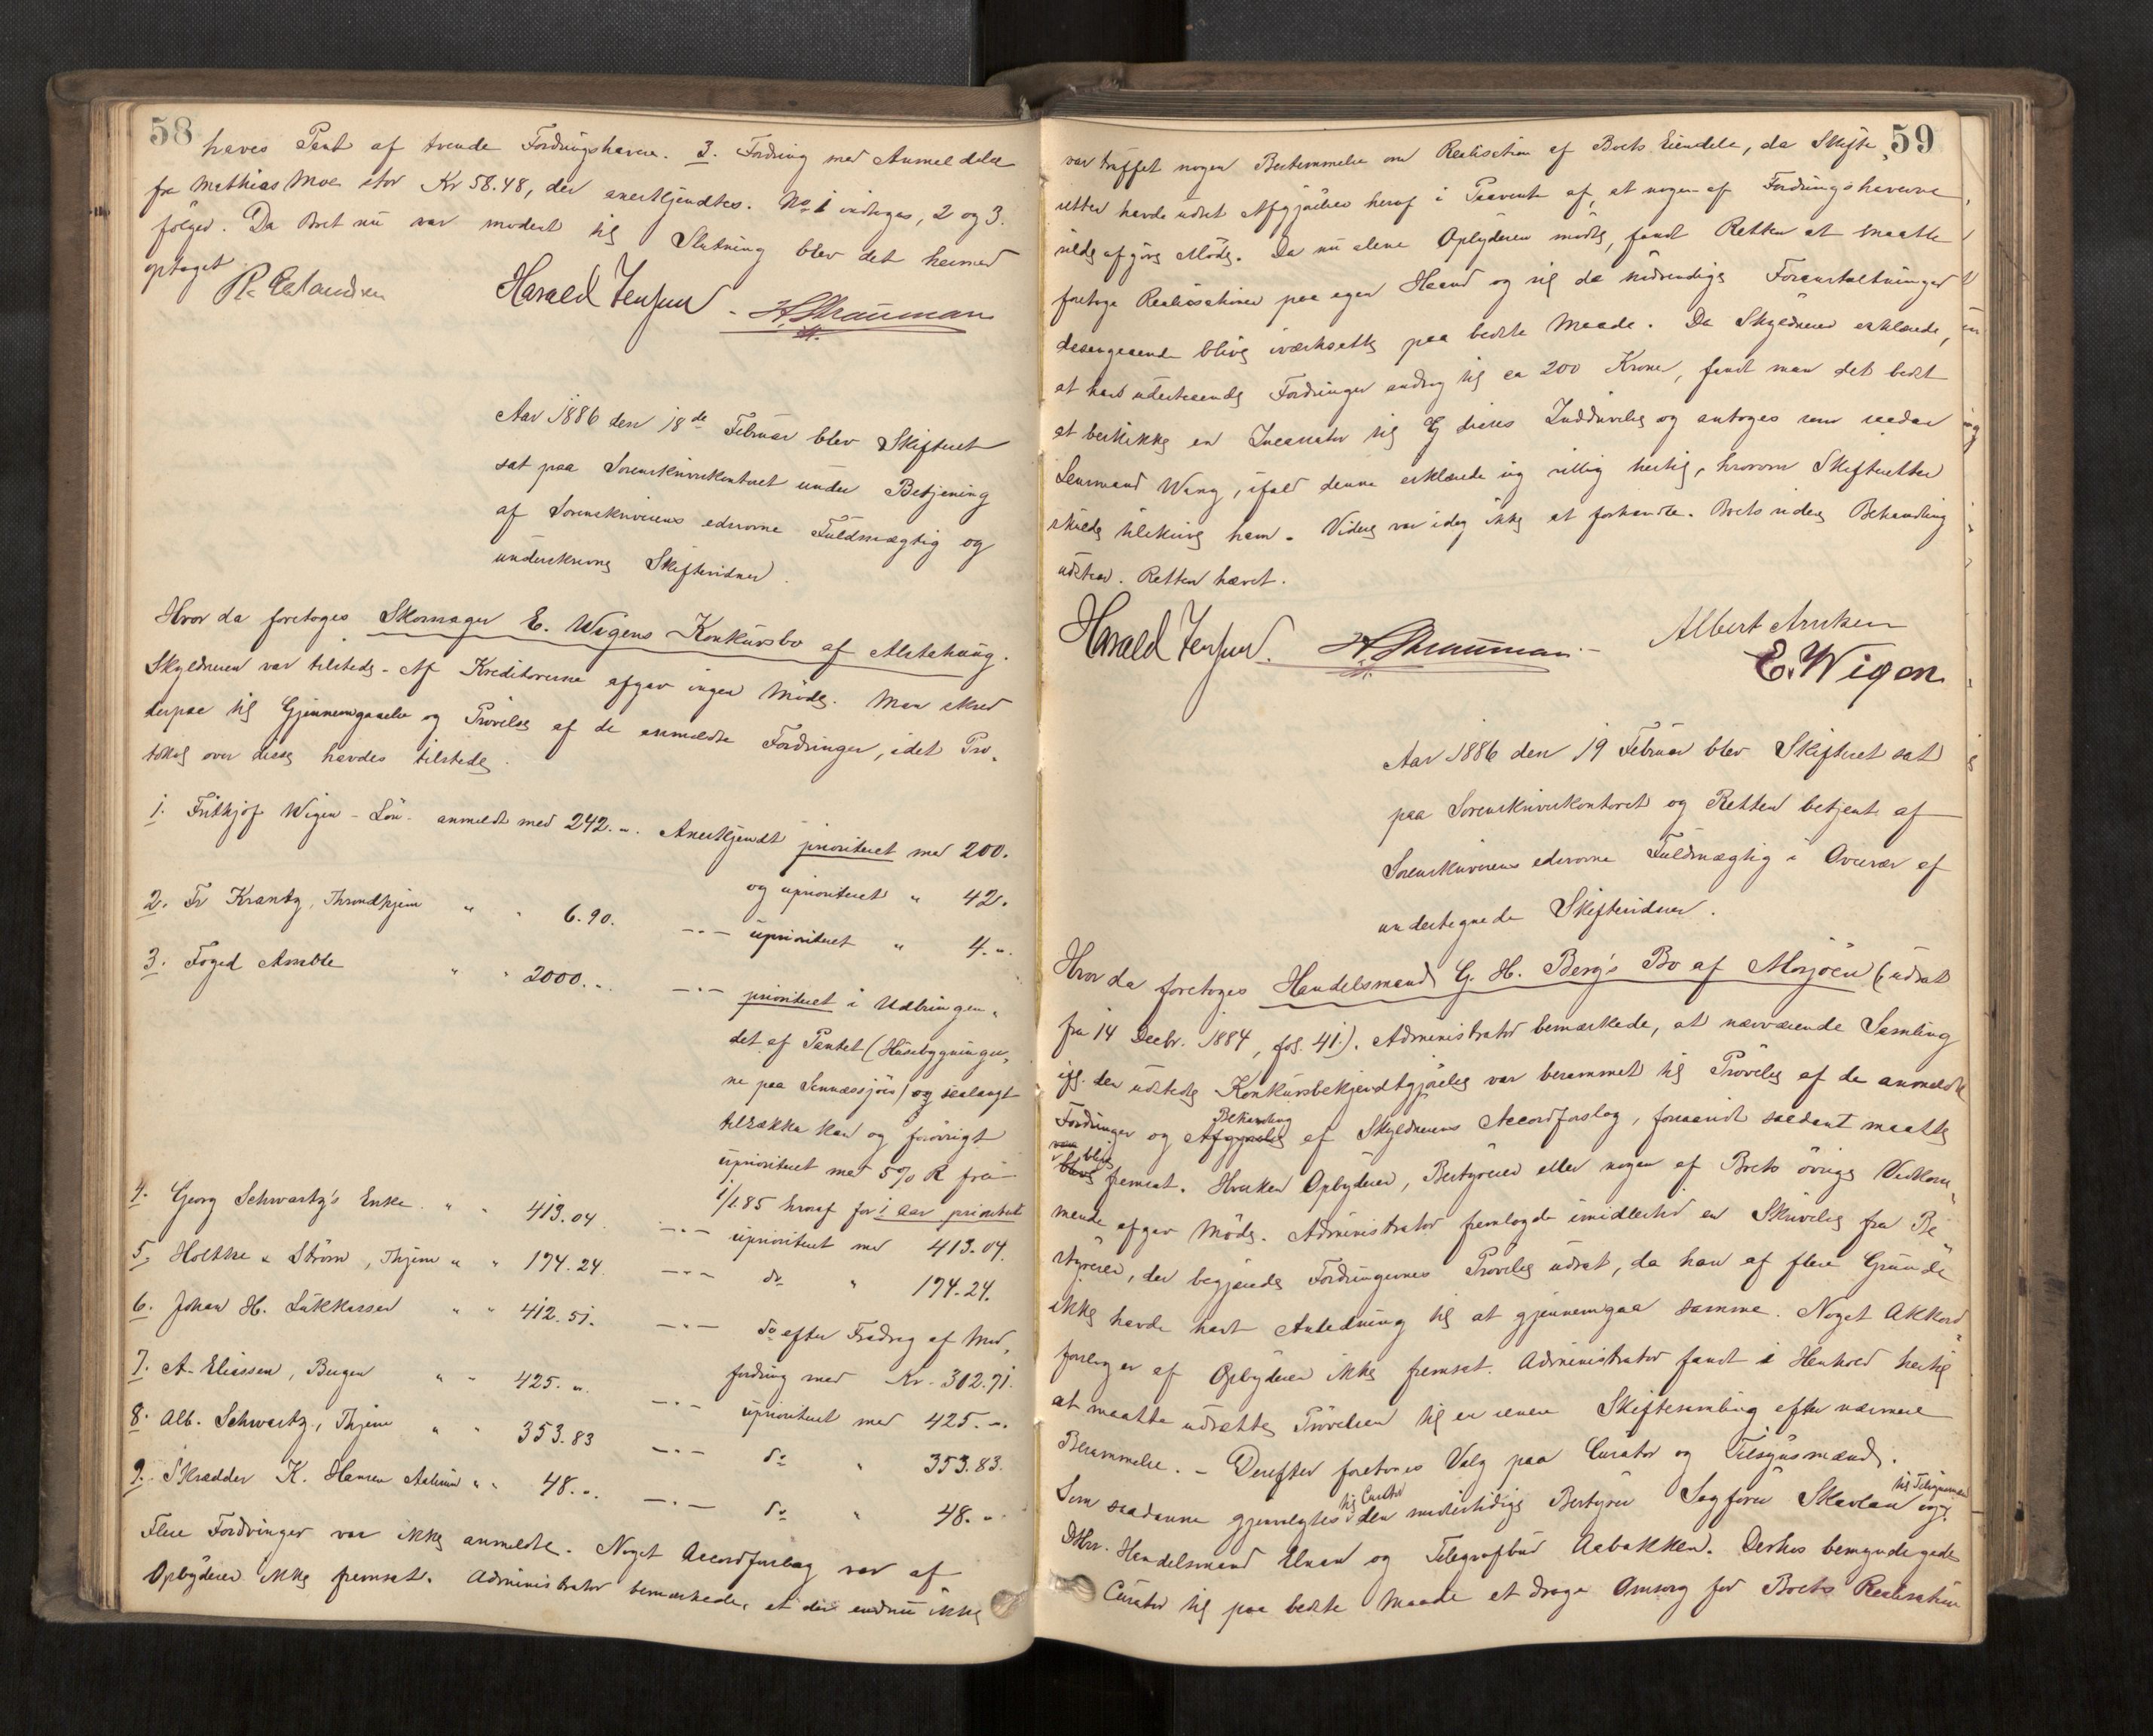 58
haves Pant af tvende Fordringshavere. 3. Fordring med Anmeldelse
fra Mathias Moe stor Kr 58.48, der anerkjendtes. No 1 indtages, 2 og 3.
følger. Da Boet nu var modent til Slutning blev det hermed
optaget
Harald Jensen
Aar 1886 den 18de Februar blev Skifteret
sat paa Sorenskriverkontoret under Betjening
af Sorenskriverens edsvorne Fuldmægtig og
underskrevne Skiftevidner.
Hvor da foretoges Skomager E. Wigens Konkursbo af Alstahaug.
Skyldneren var tilstede. Af Kreditorerne afgav ingen Møde. Man skred
derpaa til Gjennemgaaelse og Prøvelse af de anmeldte Fordringer, idet Pro-
tokol over disse havdes tilstede.
1. Frithjof Wigen - Løn - anmeldt med 242.". Anerkjendt prioriteret med 200.
og uprioriteret " 42.
2. Fr Krantz, Throndhjem " " 6.90. —"— uprioriteret " 4.".
3. Foged " " 2000.". —"— prioriteret i Udbringen-
det af Pantet (Husebygninger-
ne paa Sannessjøen) og saalangt
tilrække kan og forøvrigt
uprioriteret med 5% R fra
1/1 85 hvoraf for 1 Aar prioriteret
4. Georg Schwartz's Enke " " 413.04. —"— uprioriteret med 413.04.
5. Holtke & Strøm, Thjem " " 174.24. —"— do " 174.24.
6. Johan H. Lukkassen " " 412.51. —"— do efter Fradrag af Mod-
fordring med Kr. 302.71.
7. A. Eliassen, Bergen " " 425.". —"— uprioriteret med 425.".
8. Alb. Schwartz, Thjem " " 353.83 —"— do " 353.83.
9. Skrædder K. Hansen " " 48.". —"— do " 48."
Flere Fordringer var ikke anmeldte. Noget Accordforslag var af
Opbyderen ikke fremsat. Administrator bemærkede, at der endnu ikke
59
var truffet nogen Bestemmelse om Realisation af Boets Eiendele, da Skifte-
retten havde udsat Afgjørelsen heraf i Paavente af, at nogen af Fordringshaverne
vilde afgive Møde. Da nu alene Opbyderen mødte, fandt Retten at maatte
foretage Realisationen paa egen Haand og vil de nødvendige Foranstaltninger
desangaaende blive iværksatte paa bedste Maade. Da Skyldneren erklærede,
at hans udestaaende Fordringer androg til ca 200 Kroner, fandt man det bedst
at beskikke en Incassator til disses Inddrivelse og antoges som saadan
Lensmand Wang, ifald denne erklærede sig villig hertil, hvorom Skifteretten
skulde tilskrive ham. Videre var idag ikke at forhandle. Boets videre Behandling
udstaar. Retten hævet.
Harald Jensen.
E. Wigen
Aar 1886 den 19 Februar blev Skifteret sat
paa Sorenskriverkontoret og Retten betjent af
Sorenskriverens edsvorne Fuldmægtig i Overvær af
undertegnede Skiftevidner.
Hvor da foretoges Handelsmand G. H. Berg's Bo af Mosjøen (udsat
fra 14 Decbr. 1884, fol. 41.). Administrator bemærkede, at nærværende Samling
ifl. den udstedte Konkursbekjendtgjørelse var berammet til Prøvelse af de anmeldte
Fordringer og Afgjørelse Behandling af Skyldnerens Accordforslag, forsaavidt saadant maatte
blive fremsat. Hverken Opbyderen, Bestyreren eller nogen af Boets øvrige Vedkom-
mende afgav Møde. Administrator fremlagde imidlertid en Skrivelse fra Be-
styreren, der begjærede Fordringernes Prøvelse udsat, da han af flere Grunde
ikke havde havt Anledning til at gjennemgaa samme. Noget Akkord-
forslag er af Opbyderen ikke fremsat. Administrator fandt i Henhold hertil
at maatte udsætte Prøvelsen til en senere Skiftesamling efter nærmere
Berammelse. - Derefter foretoges Valg paa Curator og Tilsynsmænd.
Som saadanne gjenvalgtes til Curator den midlertidige Bestyrer Sagfører Skavlan og til Tilsynsmænd
DHrr. Handelsmand Elnan og Telegrafbud Aabakken. Derhos bemyndigedes
Curator til paa bedste Maade at drage Omsorg for Boets Realisation